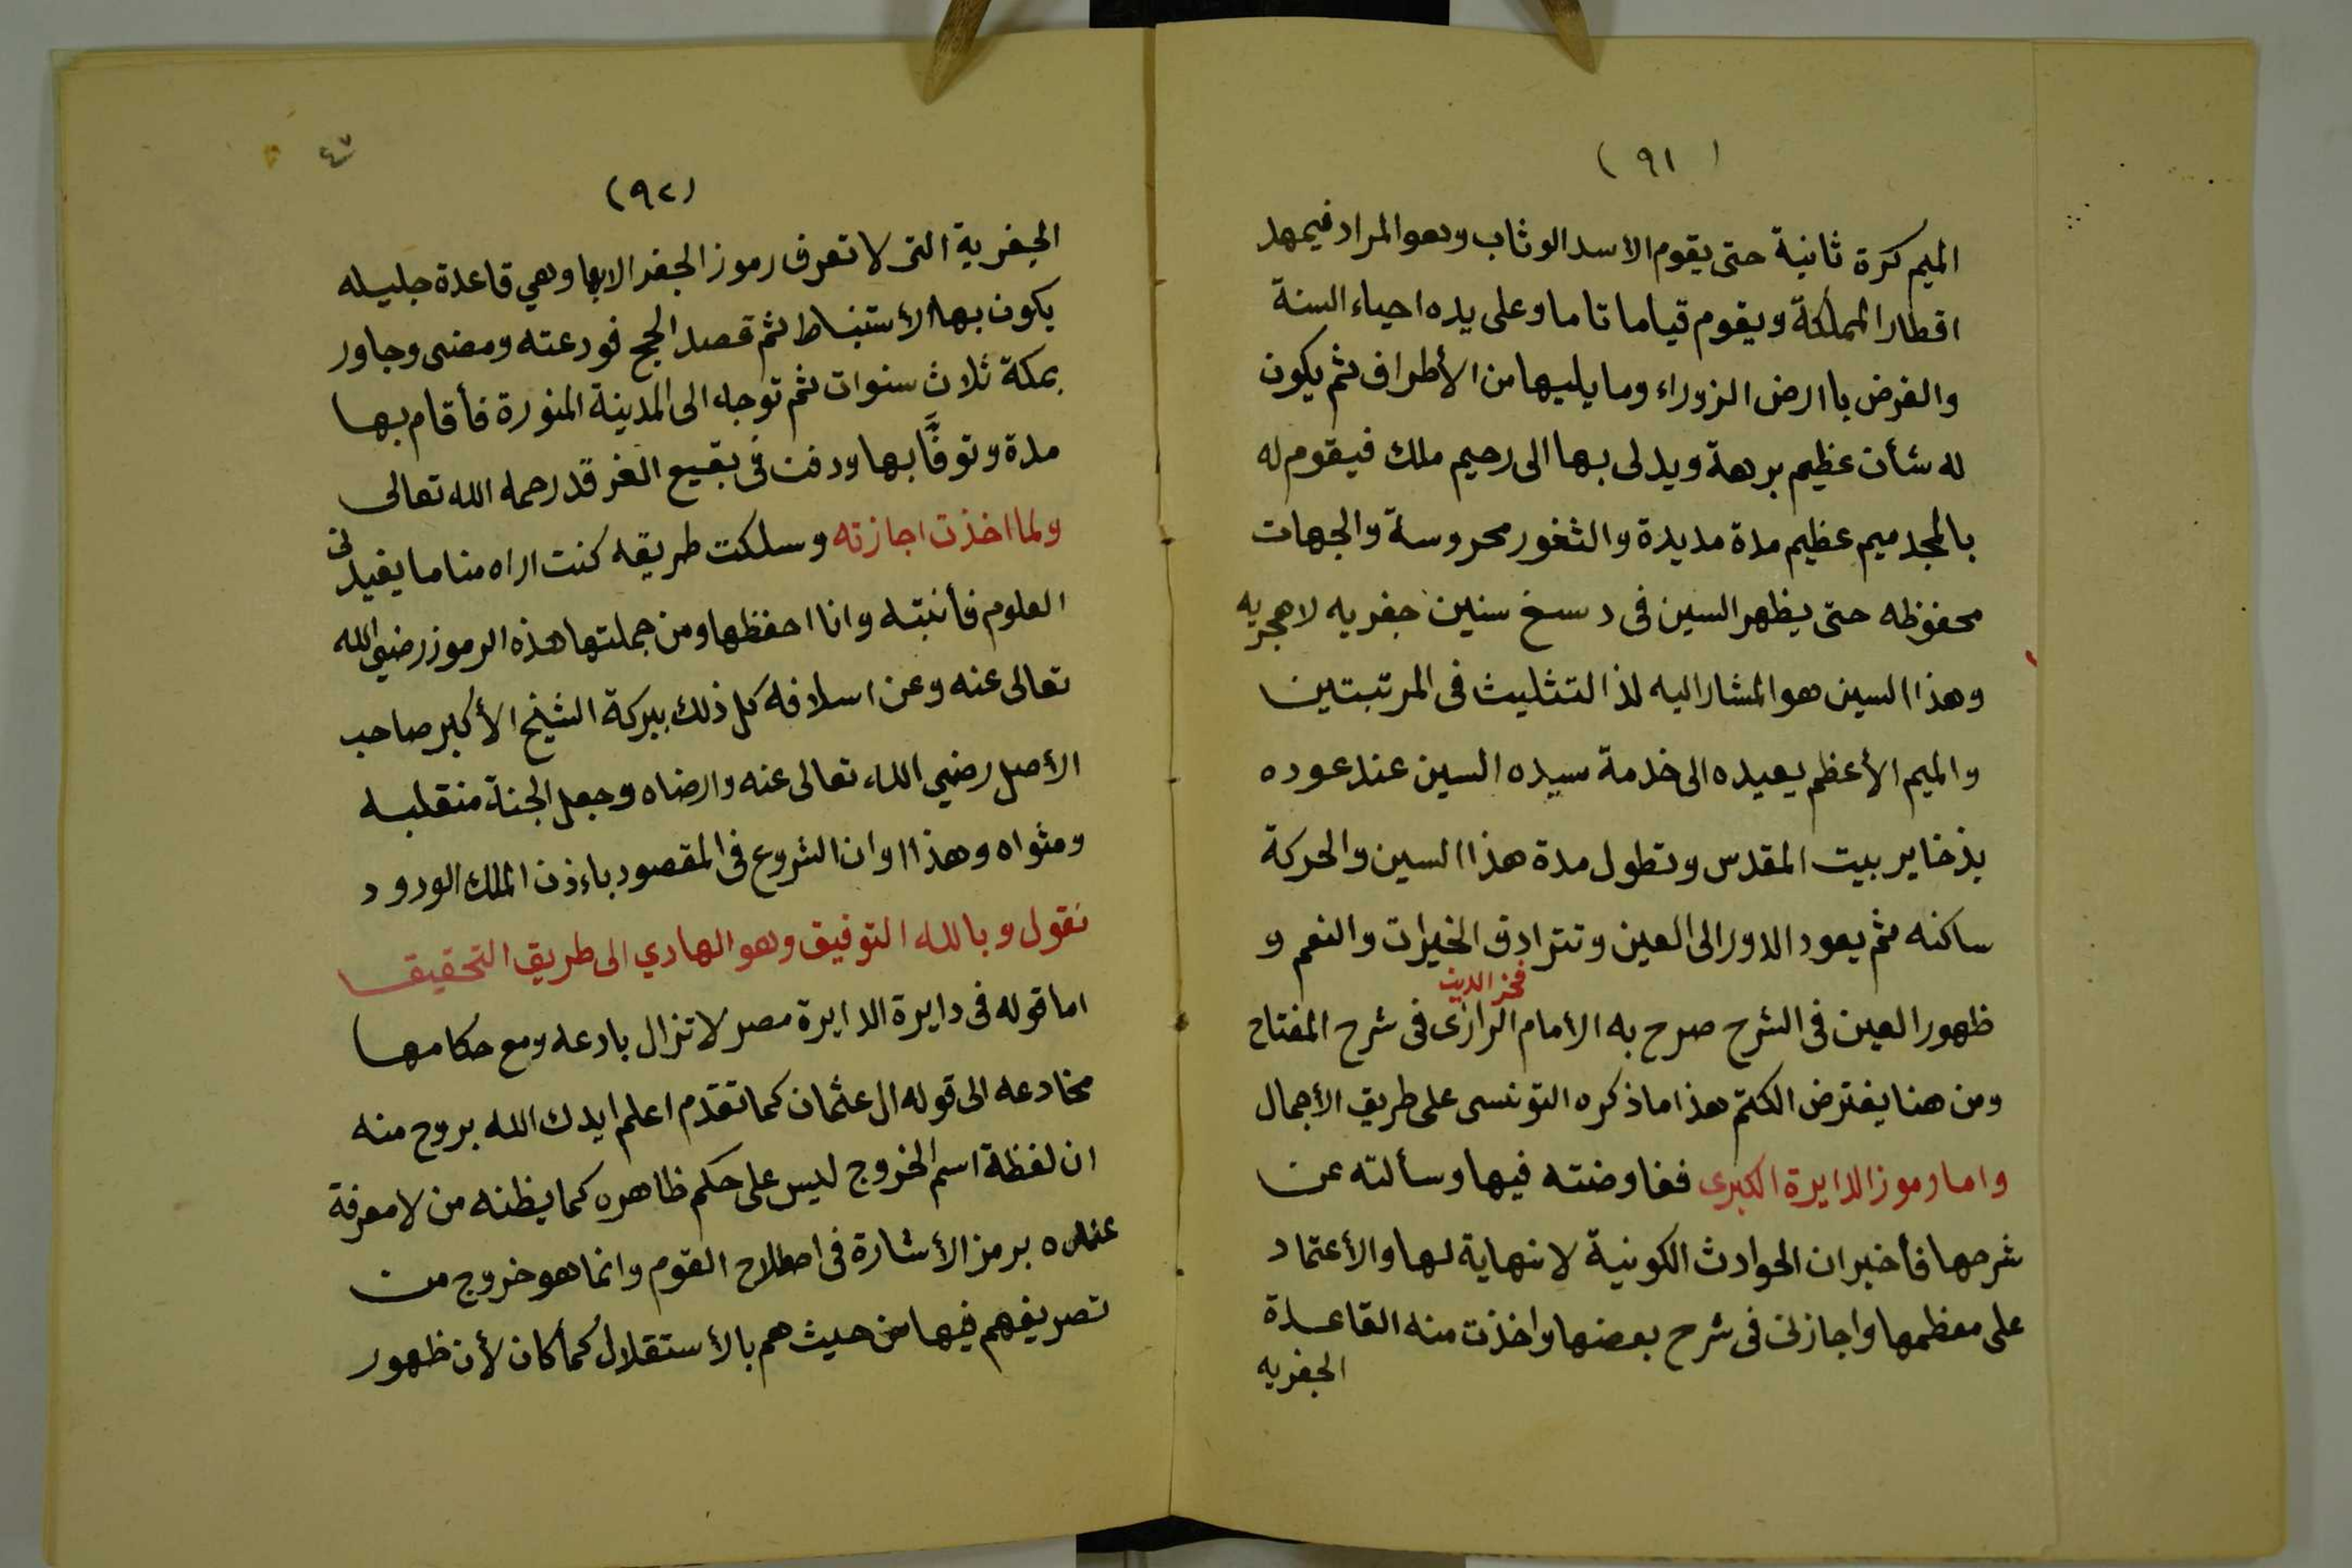 (٩١)
الميم كرة ثانية حتى يقوم الأسد الوثاب وهو المراد فيمهد
اقطار المملكة ويقوم قياما تاما وعلى يده احياء السنة
والفرض باارض الزوراء وما يليها من الأطراف ثم يكون
له شأن عظيم برهة ويدلى بها الى رحيم ملك فيقوم له
بالمجد ميم عظيم مدة مديدة والثغور محروسة والجهات
محفوظه حتى يظهر السين فى د سخ سنين جفريه لا هجريه
وهذا السين هو المشار اليه لذا لتثليث فى المرتبتين
والميم الأعظم يعيده الى خدمة سيده السين عند عوده
بذخاير بيت المقدس وتطول مدة هذا السين والحركة
ساكنه ثم يعود الدور الى العين وتترادف الخيرات والنعم و
فخر الدين
ظهور العين فى الشرح صرح به الأمام الرازى فى شرح المفتاح
ومن هنا يفترض الكتم هذا ما ذكره التونسى على طريق الأجمال
واما رموز الدايرة الكبرى ففاوضته فيها وسألته عن
شرحها فأخبر ان الحوادث الكونية لا نهاية لها والأعتماد
على معظمها واجازنى فى شرح بعضها واخذت منه القاعدة
الجفريه
٤٧
(٩٢)
الجفرية التى لا تعرف رموز الجفر الا بها وهي قاعدة جليله
يكون بها الأستنباط ثم قصد الحج فودعته ومضى وجاور
بمكة ثلاث سنوات ثم توجه الى المدينة المنورة فأقام بها
مدة وتوفَّا بها ودفن فى بقيع الغرقد رحمه الله تعالى
ولما اخذت اجازته وسلكت طريقه كنت اراه مناما يفيدنى
العلوم فأنبته وانا احفظها ومن جملتها هذه الرموز رضي الله
تعالى عنه وعن اسلافه كل ذلك ببركة الشيخ الأكبر صاحب
الأصل رضي الله تعالى عنه وارضاه وجعل الجنة منقلبه
ومثواه وهذا اوان الشروع فى المقصود باءذن الملك الودود
نقول وبالله التوفيق وهو الهادي الى طريق التحقيق
اما قوله فى دايرة الدايرة مصر لا تزال بادعه ومع حكامها
مخادعه الى قوله ال عثمان كما تقدم اعلم ايدك الله بروح منه
ان لفظة اسم الخروج ليس على حكم ظاهره كما يظنه من لا معرفة
عنده برمز الأشارة فى اصطلاح القوم وانما هو خروج من
تصريفهم فيها من حيث هم بالأستقلال كما كان لأن ظهور